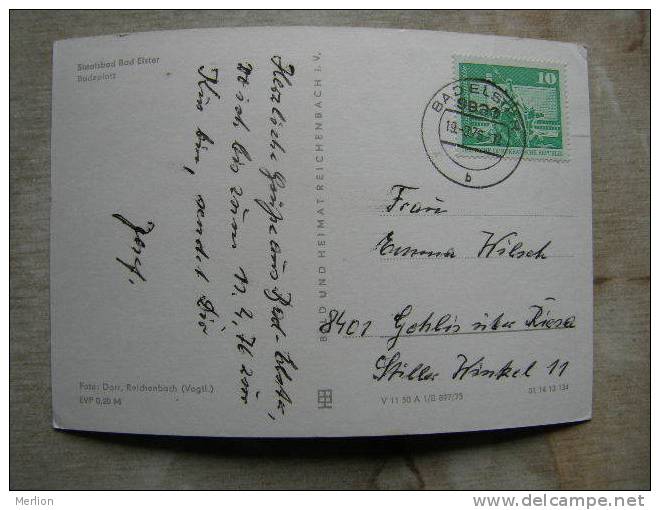 Staatsbad Bad Elster
Badeplatz
Herzliche Grüße aus Bad-Elster,
wo ich bis zum 11. 4. 76 zur
Kur bin, sendet Dir
BILD UND HEIMAT REICHENBACH i. V.
Foto: Dorr, Reichenbach (Vogtl.)
EVP 0,20 M
10
BAD ELSTER
9933
b
DEUTSCHE DEMOKRATISCHE REPUBLIK
Frau
Emma Wilsch
8401 Gohlis über Riesa
Stiller Winkel 11
V 11 50 A 1/B 897/75
01 14 13 134
Merlion
www.delcampe.net